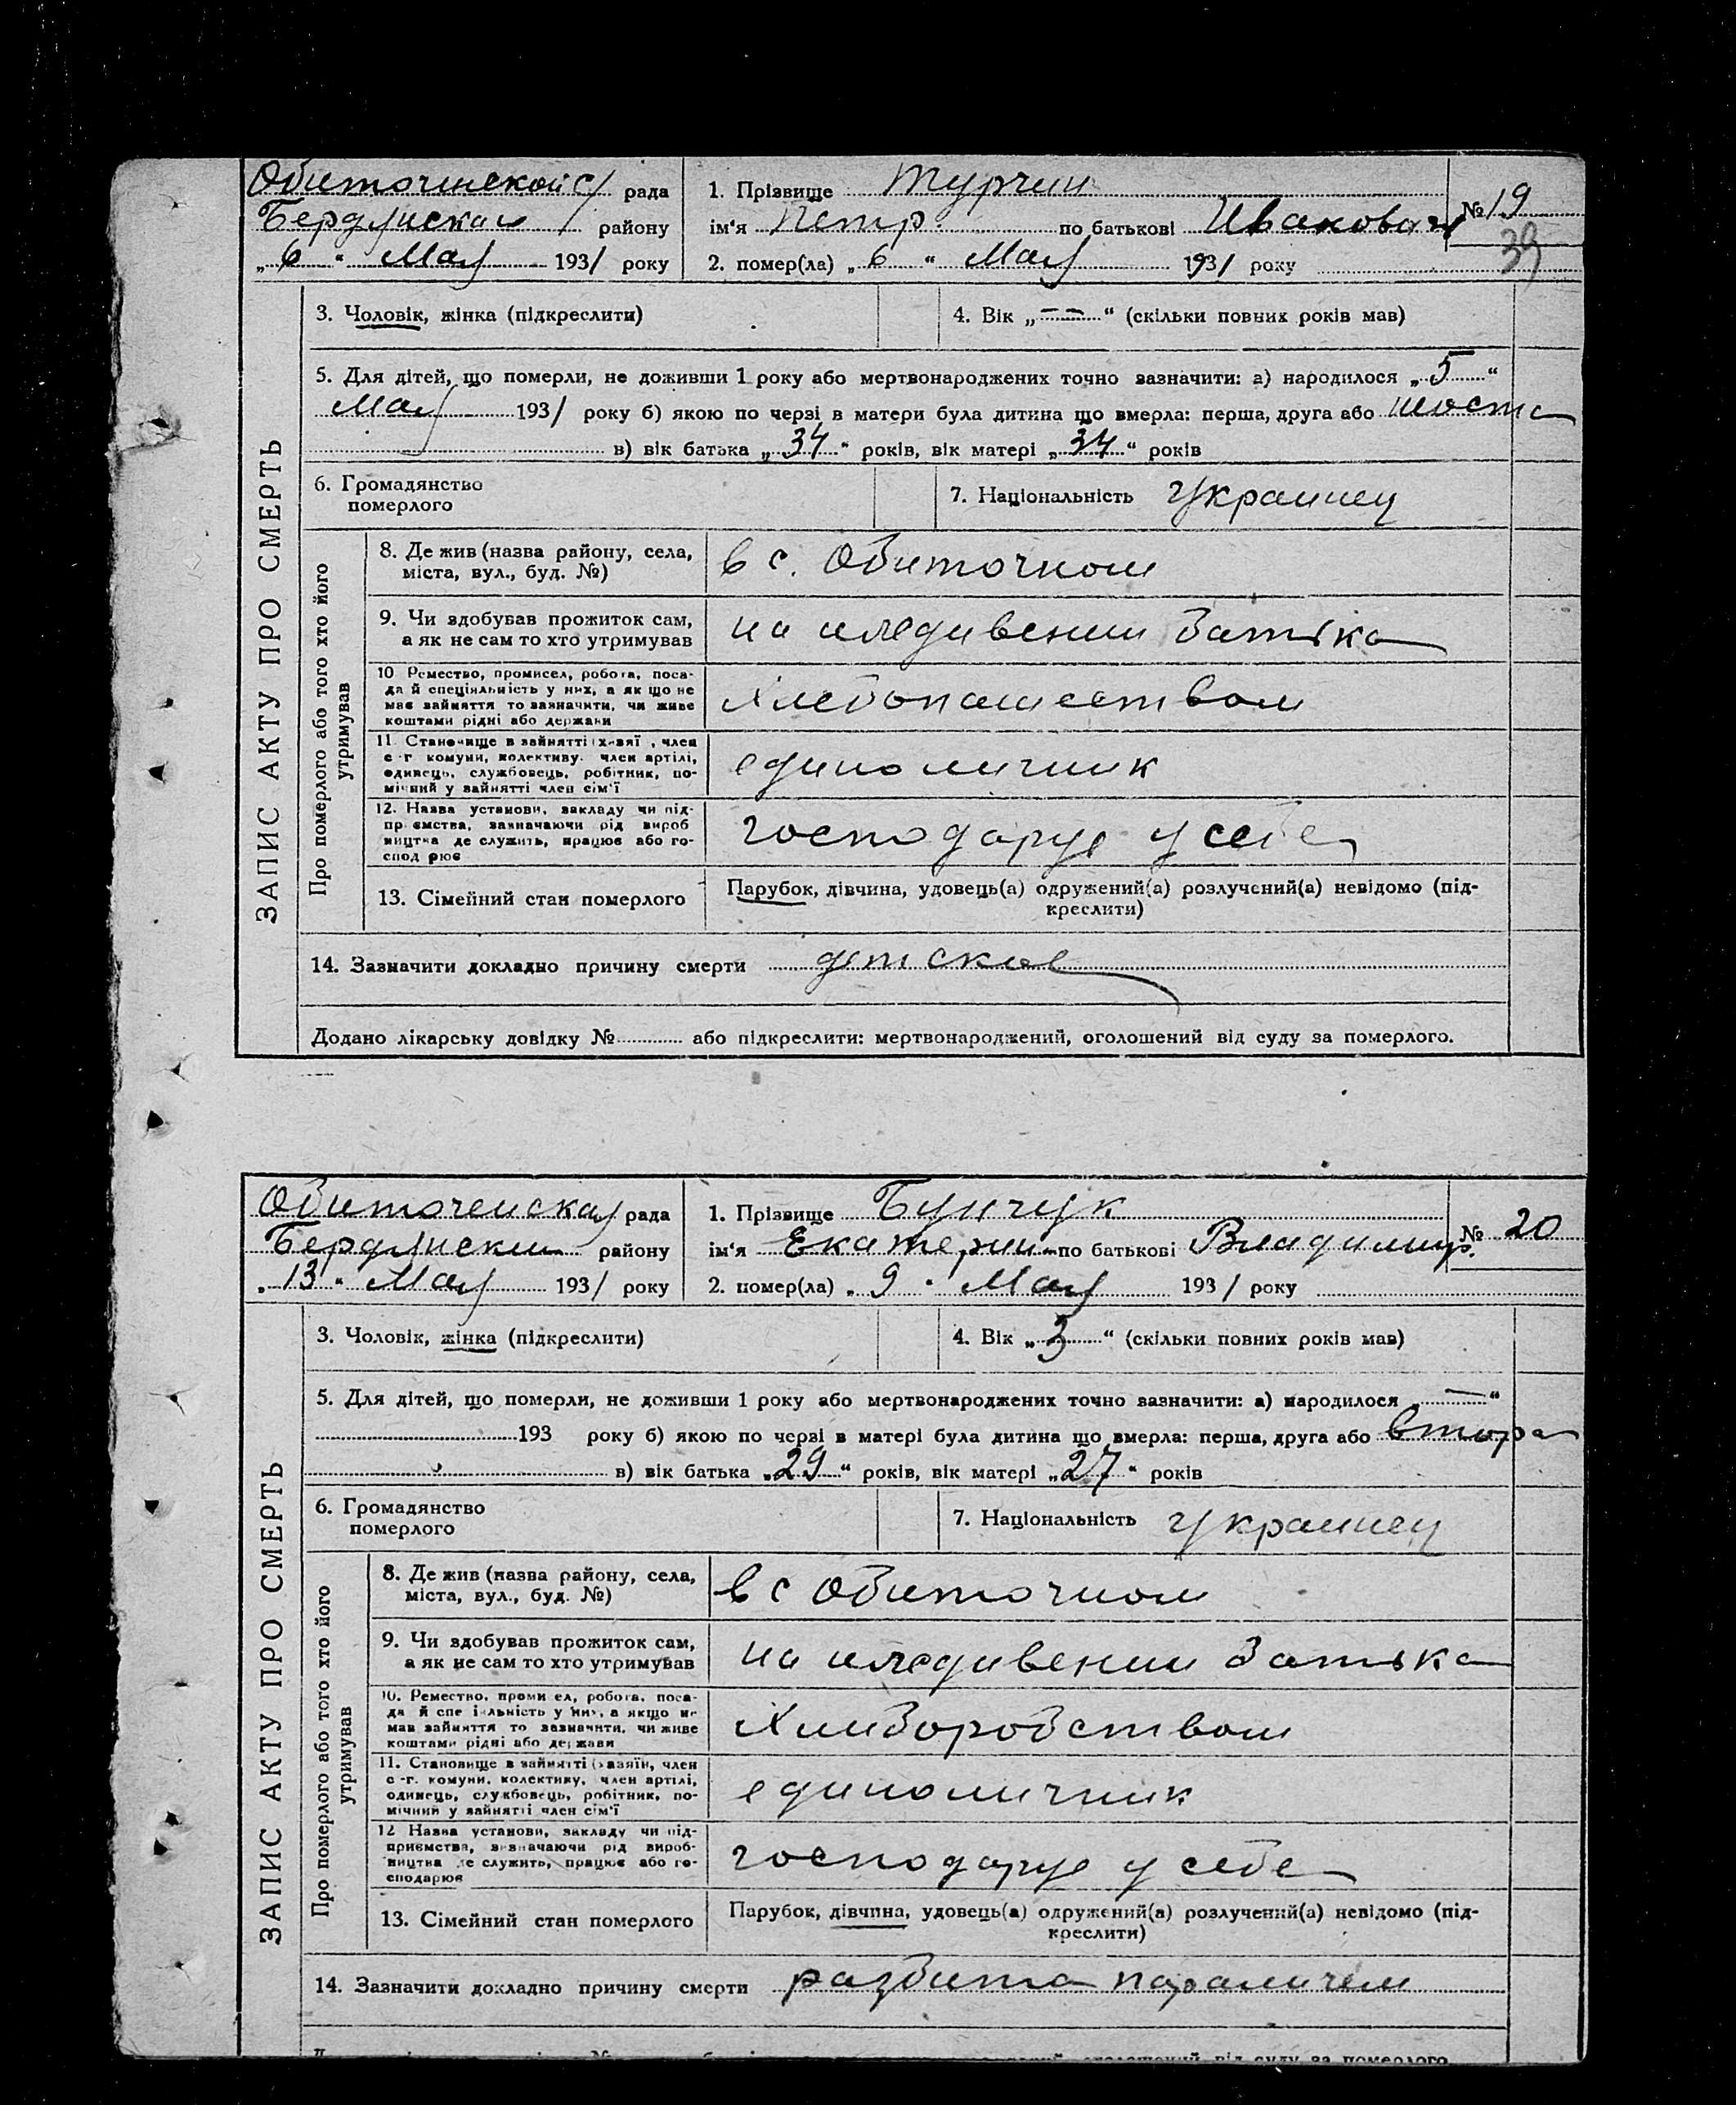 Обиточенской с/ рада
Бердянскаи району
„ 6 “ Мая 1931 року
1. Прізвище Турчин
ім'я Петр по батькові Иванович
№ 19
39
2. помер(ла) „ 6 “ Мая 1931 року
3. Чоловік, жінка (підкреслити)
4. Вік „ — — “ (скільки повних років мав)
5. Для дітей, що померли, не доживши 1 року або мертвонароджених точно зазначити: а) народилося „ 5 “
Мая 1931 року б) якою по черзі в матери була дитина що вмерла: перша, друга або шоста
в) вік батька „ 34 “ років, вік матері „ 34 “ років
6. Громадянство
померлого
7. Національність Украинец
ЗАПИС АКТУ ПРО СМЕРТЬ
Про померлого або того хто його
утримував
8. Де жив (назва району, села,
міста, вул., буд. №)
в с. Обиточном
9. Чи здобував прожиток сам,
а як не сам то хто утримував
на иледивении батька
10 Ремество, промисел, робота, поса-
да й спеціяльність у них, а як що не
має зайняття то зазначити, чи живе
коштами рідні або держави
хлебопашеством
11. Становище в зайнятті (х-зяї , член
с -г комуни, колективу. член артілі,
одинець, службовець, робітник, по-
мічний у зайнятті член сім'ї
единоличник
12. Назва установи, закладу чи під-
пр ємства, зазначаючи рід вироб
ництва де служить, працює або го-
спод рює
господарує у себе
13. Сімейний стан померлого
Парубок, дівчина, удовець(а) одружений(а) розлучений(а) невідомо (під-
креслити)
14. Зазначити докладно причину смерти детское
Додано лікарську довідку № або підкреслити: мертвонароджений, оголошений від суду за померлого.
Обиточенская рада
Бердянский району
„ 13 “ Мая 1931 року
1. Прізвище Бунчук
ім'я Екатерин по батькові Владимир.
№ 20
2. помер(ла) „ 9 “ Мая 1931 року
3. Чоловік, жінка (підкреслити)
4. Вік „ 3 “ (скільки повних років мав)
5. Для дітей, що померли, не доживши 1 року або мертвонароджених точно зазначити: а) народилося — “
193 року б) якою по черзі в матері була дитина що вмерла: перша, друга або втора
в) вік батька „ 29 “ років, вік матері „ 27 “ років
6. Громадянство
померлого
7. Національність Украинец
ЗАПИС АКТУ ПРО СМЕРТЬ
Про померлого або того хто його
утримував
8. Де жив (назва району, села,
міста, вул., буд. №)
в с Обиточном
9. Чи здобував прожиток сам,
а як не сам то хто утримував
на иледивении батька
10. Ремество, проми ел, робота, поса-
да й спе і льність у них, а якщо не
має зайняття то зазначити, чи живе
коштами рідні або держави
Хлиборобством
11. Становище в зайнятті (хазяїн, член
с -г. комуни, колективу, член артілі,
одинець, службовець, робітник, по-
мічний у зайнятті член сім'ї
единоличник
12 Назва установи, закладу чи під-
приємства, зазначаючи рід вироб-
ництва де служить, працює або го-
сподарює
господарує у себе
13. Сімейний стан померлого
Парубок, дівчина, удовець(а) одружений(а) розлучений(а) невідомо (під-
креслити)
14. Зазначити докладно причину смерти разбита параличем